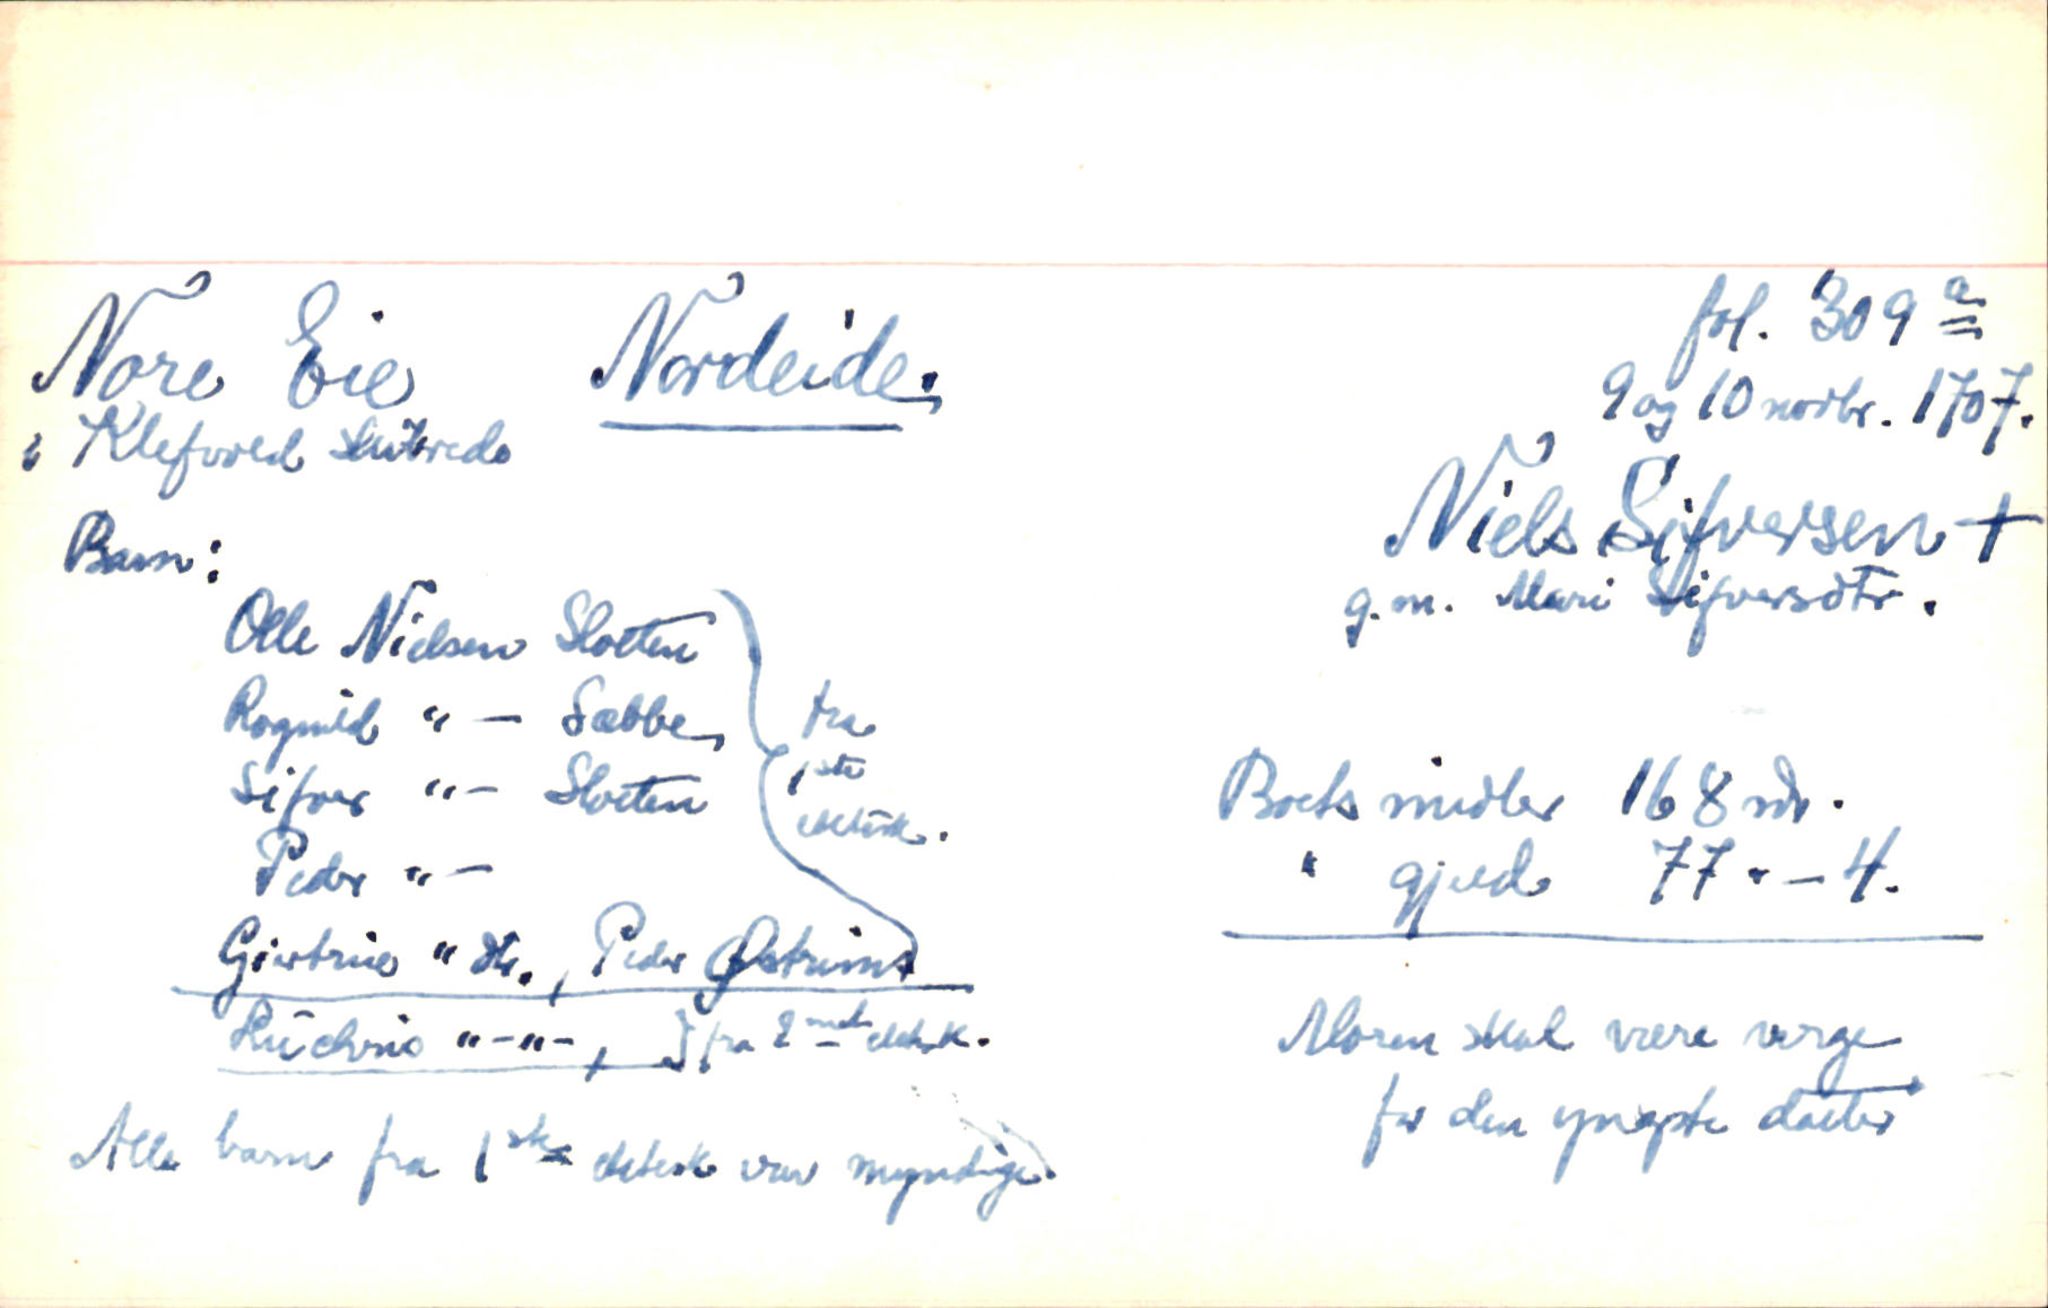 Nore Eie Nordeide. fol. 309 a
i Klefvold skibrede 9 og 10 novbr. 1707.
Niels Sifversen +
g. m. Mari Sifversdtr.
Barn:
Olle Nielsen Sloeten
Rognild " — Sæbbe,
Sifver " — Sloeten
Peder " —
Giertrue " dtr., Peder Østrims
fra
1ste
ektesk.
Luchris " — " —, } fra 2net ektesk.
Alle barn fra 1ste ektesk var myndige.
Boets midler 168 rdr.
" gjeld 77 " — 4.
Moren skal være verge
for den yngste datter